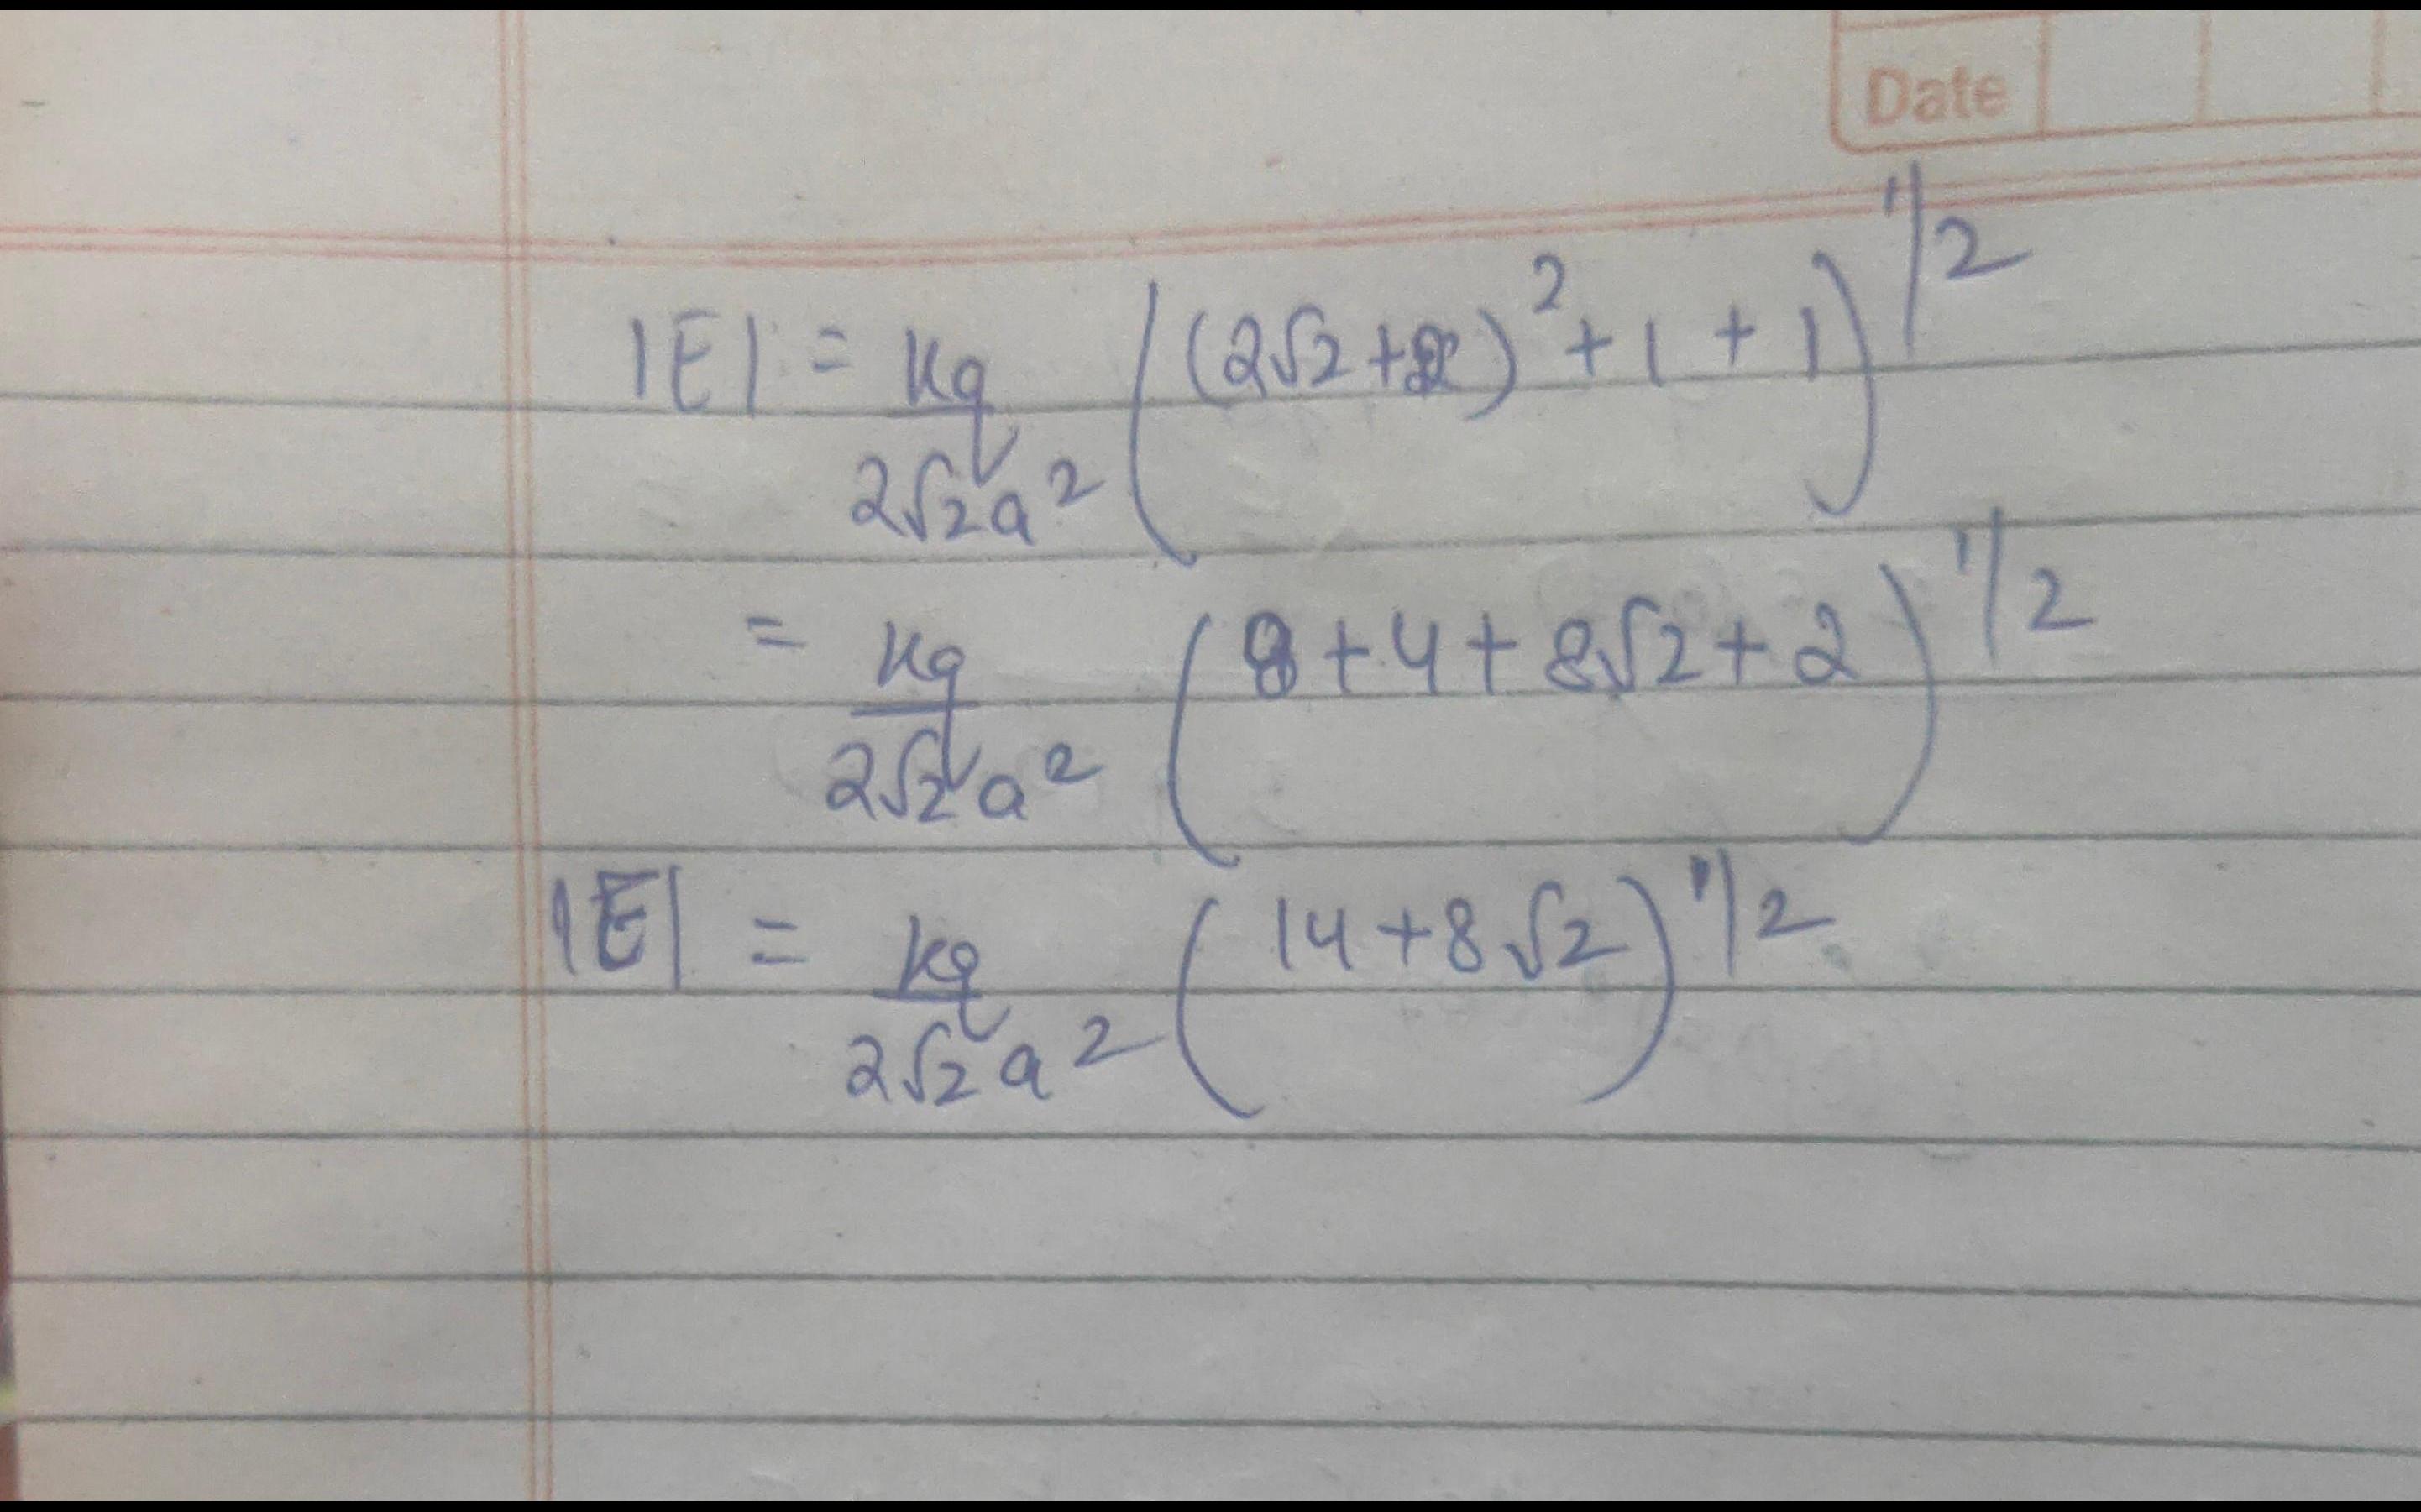 Date
|E| = kq/2√2a² ((2√2+2)² + 1 + 1)^1/2
= kq/2√2a² (8+4+8√2+2)^1/2
|E| = kq/2√2a² (14+8√2)^1/2